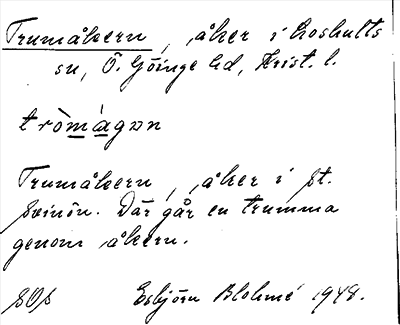 Trumåkern, åker i Loshults
sn, Ö. Göinge hd, Krist. l.
tròmàgɒn
Trumåkern, åker i St.
Svinön. Där går en trumma
genom åkern.
Esbjörn Blohmé 1948.